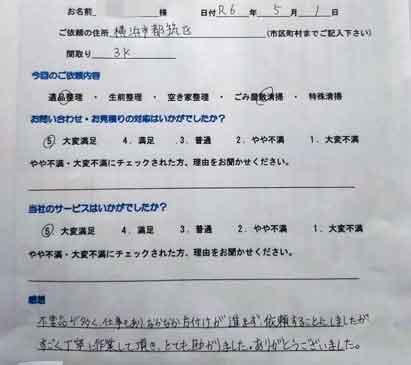 お名前 様 日付 R6 年 5 月 1 日
ご依頼の住所 横浜市都筑区 (市区町村までご記入下さい)
間取り 3K
今回のご依頼内容
遺品整理 ・ 生前整理 ・ 空き家整理 ・ ごみ屋敷清掃 ・ 特殊清掃
お問い合わせ・お見積りの対応はいかがでしたか?
5. 大変満足 4. 満足 3. 普通 2. やや不満 1. 大変不満
やや不満・大変不満にチェックされた方、理由をお聞かせください。
当社のサービスはいかがでしたか?
5. 大変満足 4. 満足 3. 普通 2. やや不満 1. 大変不満
やや不満・大変不満にチェックされた方、理由をお聞かせください。
感想
不要品が多く、仕事もありなかなか片付けが進まず、依頼することにしましたが
すごく丁寧に作業して頂き、とても助かりました。ありがとうございました。